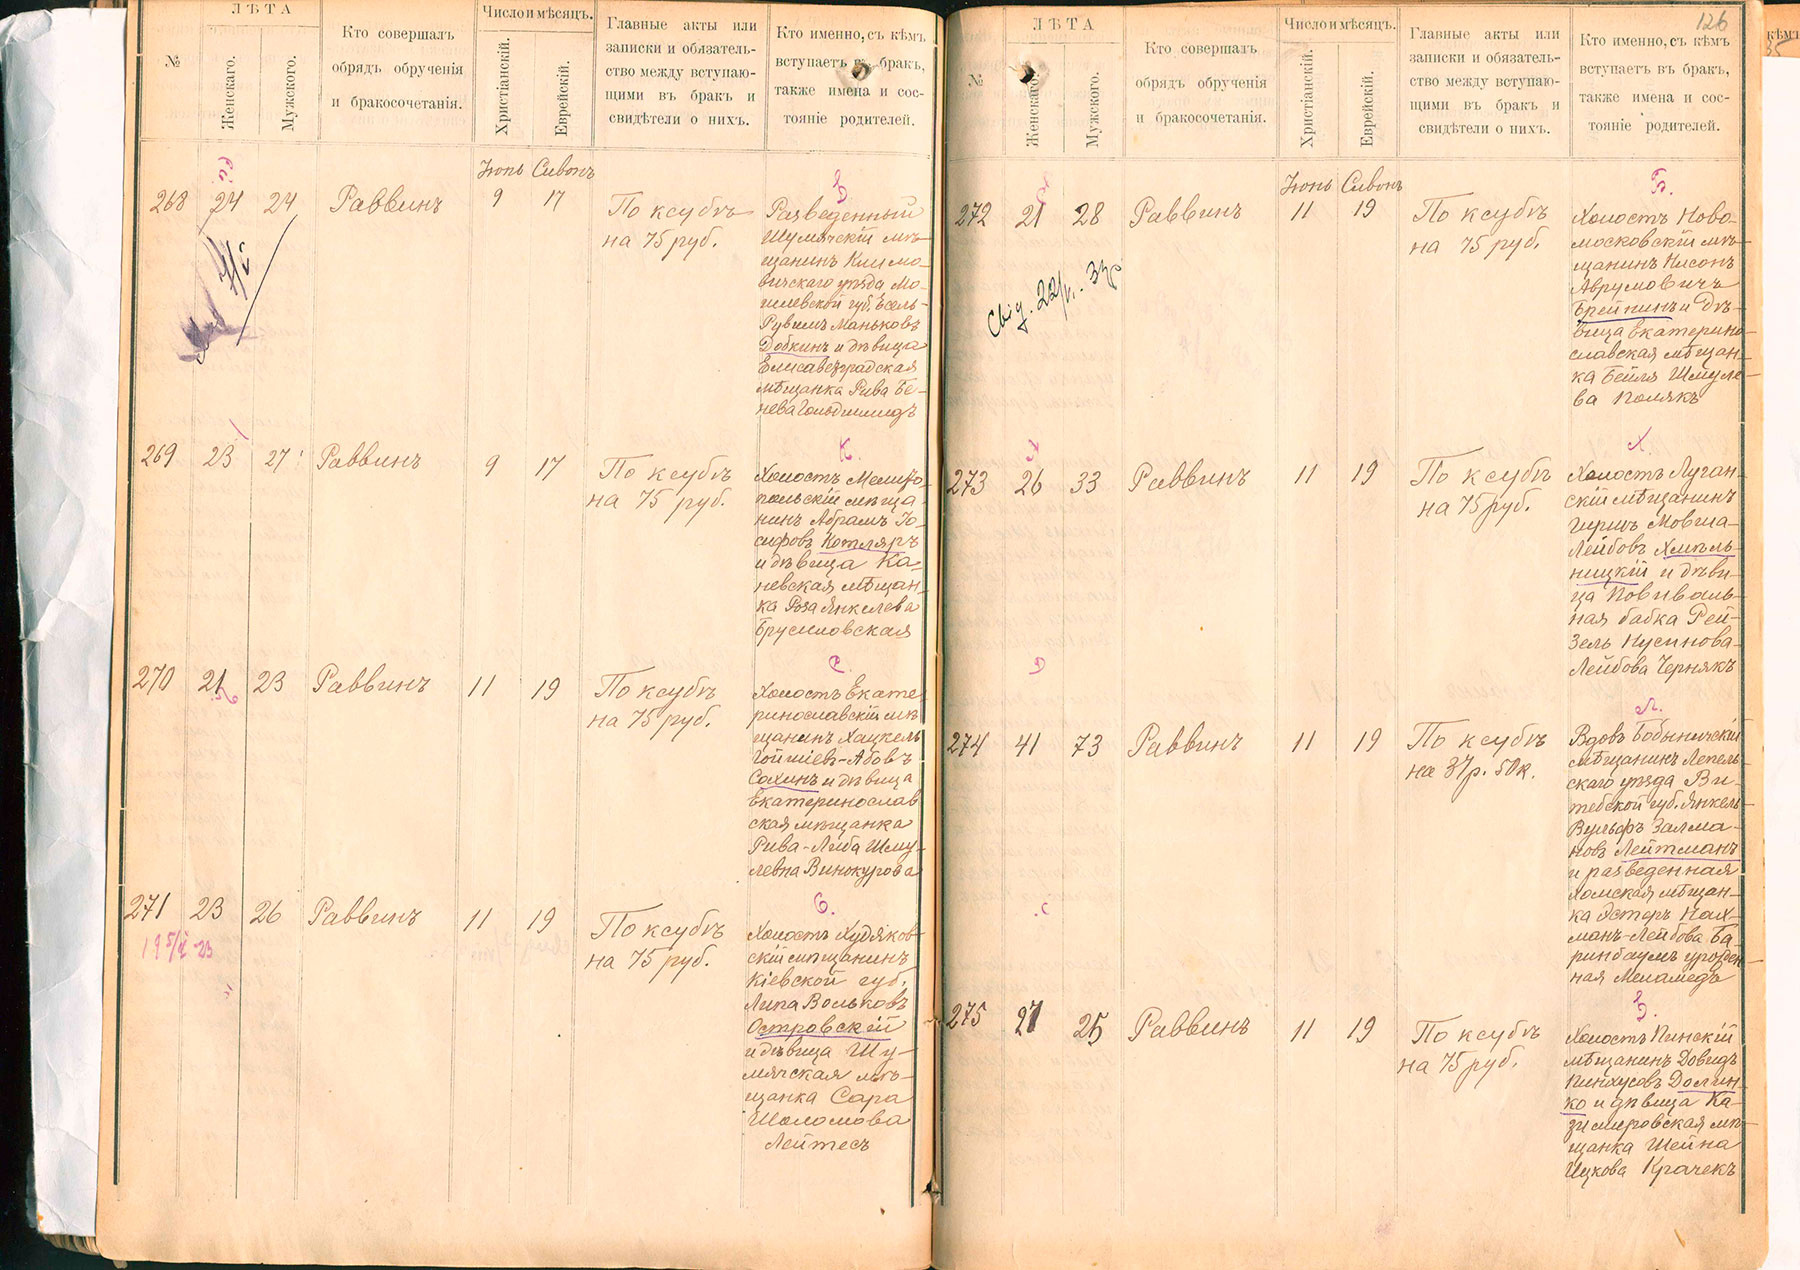 ЛѢТА
№
Женскаго.
Мужского.
Кто совершалъ
обрядъ обрученія
и бракосочетанія.
Число и мѣсяцъ.
Христіанскій.
Еврейскій.
Главные акты или
записки и обязатель-
ство между вступаю-
щими въ бракъ и
свидѣтели о нихъ.
Кто именно, съ кѣмъ
вступаетъ въ бракъ,
также имена и сос-
тояніе родителей.
Іюнь Сивонъ
268 24 24 Раввинъ 9 17
По ксубѣ
на 75 руб.
Разведенный
Шумячскій мѣ-
щанинъ Климо-
вичскаго уѣзда Мо-
гилевской губ. Есель-
Рувимъ Маньковъ
Добкинъ и дѣвица
Елисаветградская
мѣщанка Рива Бе-
нева Гольдшмидъ
269 23 27 Раввинъ 9 17
По ксубѣ
на 75 руб.
К.
Холостъ Мелито-
польскій мѣща-
нинъ Абрамъ Іо-
сифовъ Котляръ
и дѣвица Ка-
невская мѣщан-
ка Роза Янкелева
Брусиловская
270 21 23 Раввинъ 11 19
По ксубѣ
на 75 руб.
С.
Холостъ Екате
ринославскій мѣ
щанинъ Хацкель
Абовъ
Сохинъ и дѣвица
Екатеринослав
ская мѣщанка
Рива-Либа Шму-
левна Винокурова
271 23 26 Раввинъ 11 19
По ксубѣ
на 75 руб.
Холостъ Худяков-
скій мѣщанинъ
Кіевской губ.
Липа Вольковъ
Островскій
и дѣвица Шу-
мячская мѣ-
щанка Сара
Шоломова
Лейтесъ
126
ЛѢТА
№
Женскаго.
Мужского.
Кто совершалъ
обрядъ обрученія
и бракосочетанія.
Число и мѣсяцъ.
Христіанскій.
Еврейскій.
Главные акты или
записки и обязатель-
ство между вступаю-
щими въ бракъ и
свидѣтели о нихъ.
Кто именно, съ кѣмъ
вступаетъ въ бракъ,
также имена и сос-
тояніе родителей.
Іюнь Сивонъ
272 21 28 Раввинъ 11 19
По ксубѣ
на 75 руб.
Б.
Холостъ Ново-
московскій мѣ-
щанинъ Нисонъ
Аврумовичъ
Брейнинъ и дѣ-
вица Екатерино-
славская мѣщан-
ка Бейля Шмуле
ва Полякъ
273 26 33 Раввинъ 11 19
По ксубѣ
на 75 руб.
Х.
Холостъ Луган-
скій мѣщанинъ
Гиршъ Мовша-
Лейбовъ Хмѣль-
ницкій и дѣви-
ца Повиваль-
ная бабка Рей-
зель Нусинова-
Лейбова Чернякъ
274 41 73 Раввинъ 11 19
По ксубѣ
на 37 р. 50 к.
Л.
Вдовъ Бобыничскій
мѣщанинъ Лепель-
скаго уѣзда Ви-
тебской губ. Янкель-
Вульфъ Залма-
новъ Лейтманъ
и разведенная
Хомская мѣщан-
ка Эстеръ Нах-
манъ-Лейбова Ба-
ринбаумъ урожден-
ная Меламедъ
275 21 25 Раввинъ 11 19
По ксубѣ
на 75 руб.
Холостъ Пинскій
мѣщанинъ Довидъ
Пинхусовъ Долин-
ко и дѣвица Ка-
зимировская мѣ-
щанка Шейна
Ицкова Крачекъ